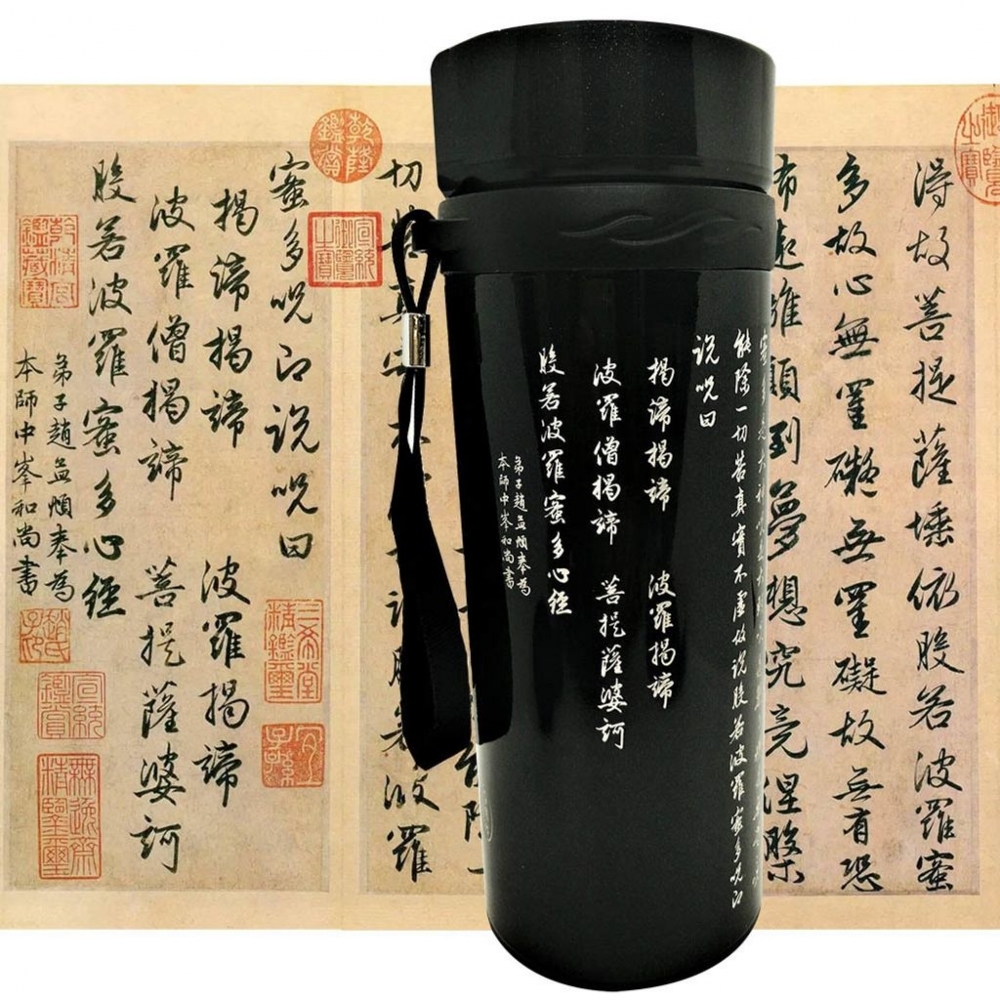 得故菩提薩埵依般若波羅蜜
多故心無罣礙無罣礙故無有恐
怖遠離顛倒夢想究竟涅槃
蜜多呪即說呪曰
揭諦揭諦 波羅揭諦
波羅僧揭諦 菩提薩婆訶
般若波羅蜜多心經
弟子趙孟頫奉為
本師中峯和尚書
能除一切苦真實不虛故說般若波羅蜜多呪即
說呪曰
揭諦揭諦 波羅揭諦
波羅僧揭諦 菩提薩婆訶
般若波羅蜜多心經
弟子趙孟頫奉為
本師中峯和尚書
乾隆鑑賞
宣統御覽之寶
三希堂精鑑璽
宣統鑑賞
無逸齋精鑑璽